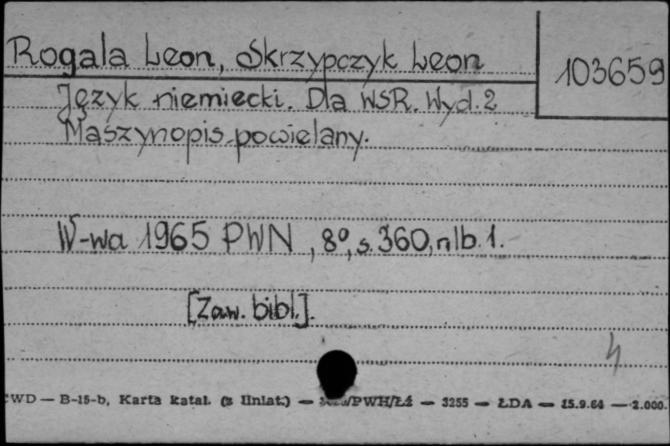 Rogala Leon, Skrzypczyk Leon
103659
Język niemiecki. Dla WSR. Wyd. 2
Maszynopis powielany.
W-wa 1965 PWN, 8°, s. 360, nlb. 1.
[Zaw. bibl.].
4
WD — B-15-b, Karta katal. (z liniat.) — /PWH/Łź — 3255 — ŁDA — 15.9.64 — 2.000.